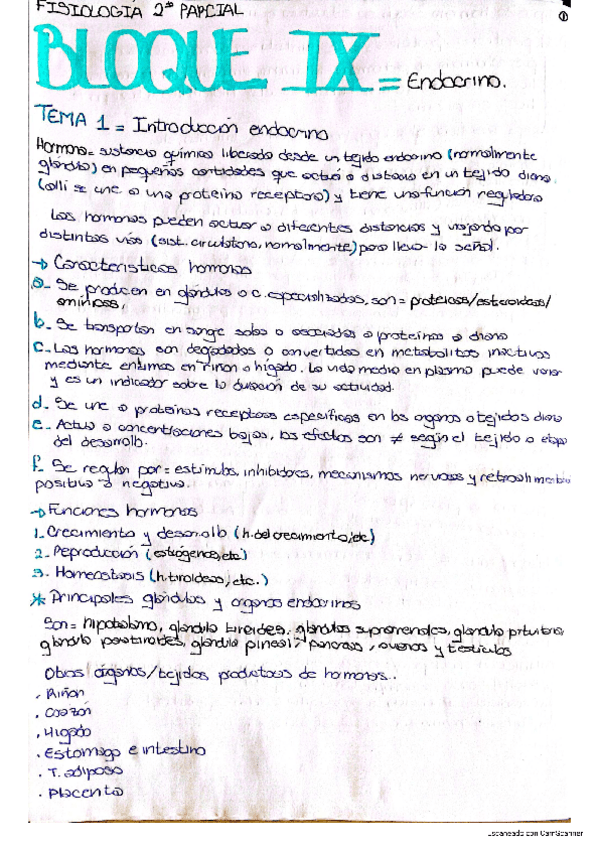 FISIOLOGIA 2do PARCIAL
1
BLOQUE IX = Endocrino.
TEMA 1 = Introducción endocrino
Hormona = sustancia química liberada desde un tejido endocrino (normalmente
glándula) en pequeñas cantidades que actúa a distancia en un tejido diana.
(allí se une a una proteína receptora) y tiene una función reguladora
Las hormonas pueden actuar a diferentes distancias y viajando por
distintas vías (sist. circulatorio, normalmente) para llevar la señal.
→ Características hormonas
a- Se producen en glándulas o c. especializadas, son = proteicas/esteroideas/
amínicas.
b- Se transportan en sangre solas o asociadas a proteínas a diana
c- Las hormonas son degradadas o convertidas en metabolitos inactivos
mediante enzimas en riñón o hígado. La vida media en plasma puede variar
y es un indicador sobre la duración de su actividad.
d- Se une a proteínas receptoras específicas en los órganos o tejidos diana
e- Actúa a concentraciones bajas, los efectos son ≠ según el tejido o etapa
del desarrollo.
f- Se regulan por = estímulos, inhibidores, mecanismos nerviosos y retroalimentación
positiva o negativa.
→ Funciones hormonas
1- Crecimiento y desarrollo (h. del crecimiento, etc)
2- Reproducción (estrógenos, etc)
3- Homeostasis (h. tiroideas, etc.)
* Principales glándulas y órganos endocrinos
Son = hipotálamo, glándula tiroides, glándulas suprarrenales, glándula pituitaria
glándula paratiroides, glándula pineal, páncreas, ovarios y testículos
Otros órganos/tejidos productores de hormonas..
. Riñón
. Corazón
. Hígado
. Estómago e intestino
. T. adiposo
. Placenta
Escaneado con CamScanner